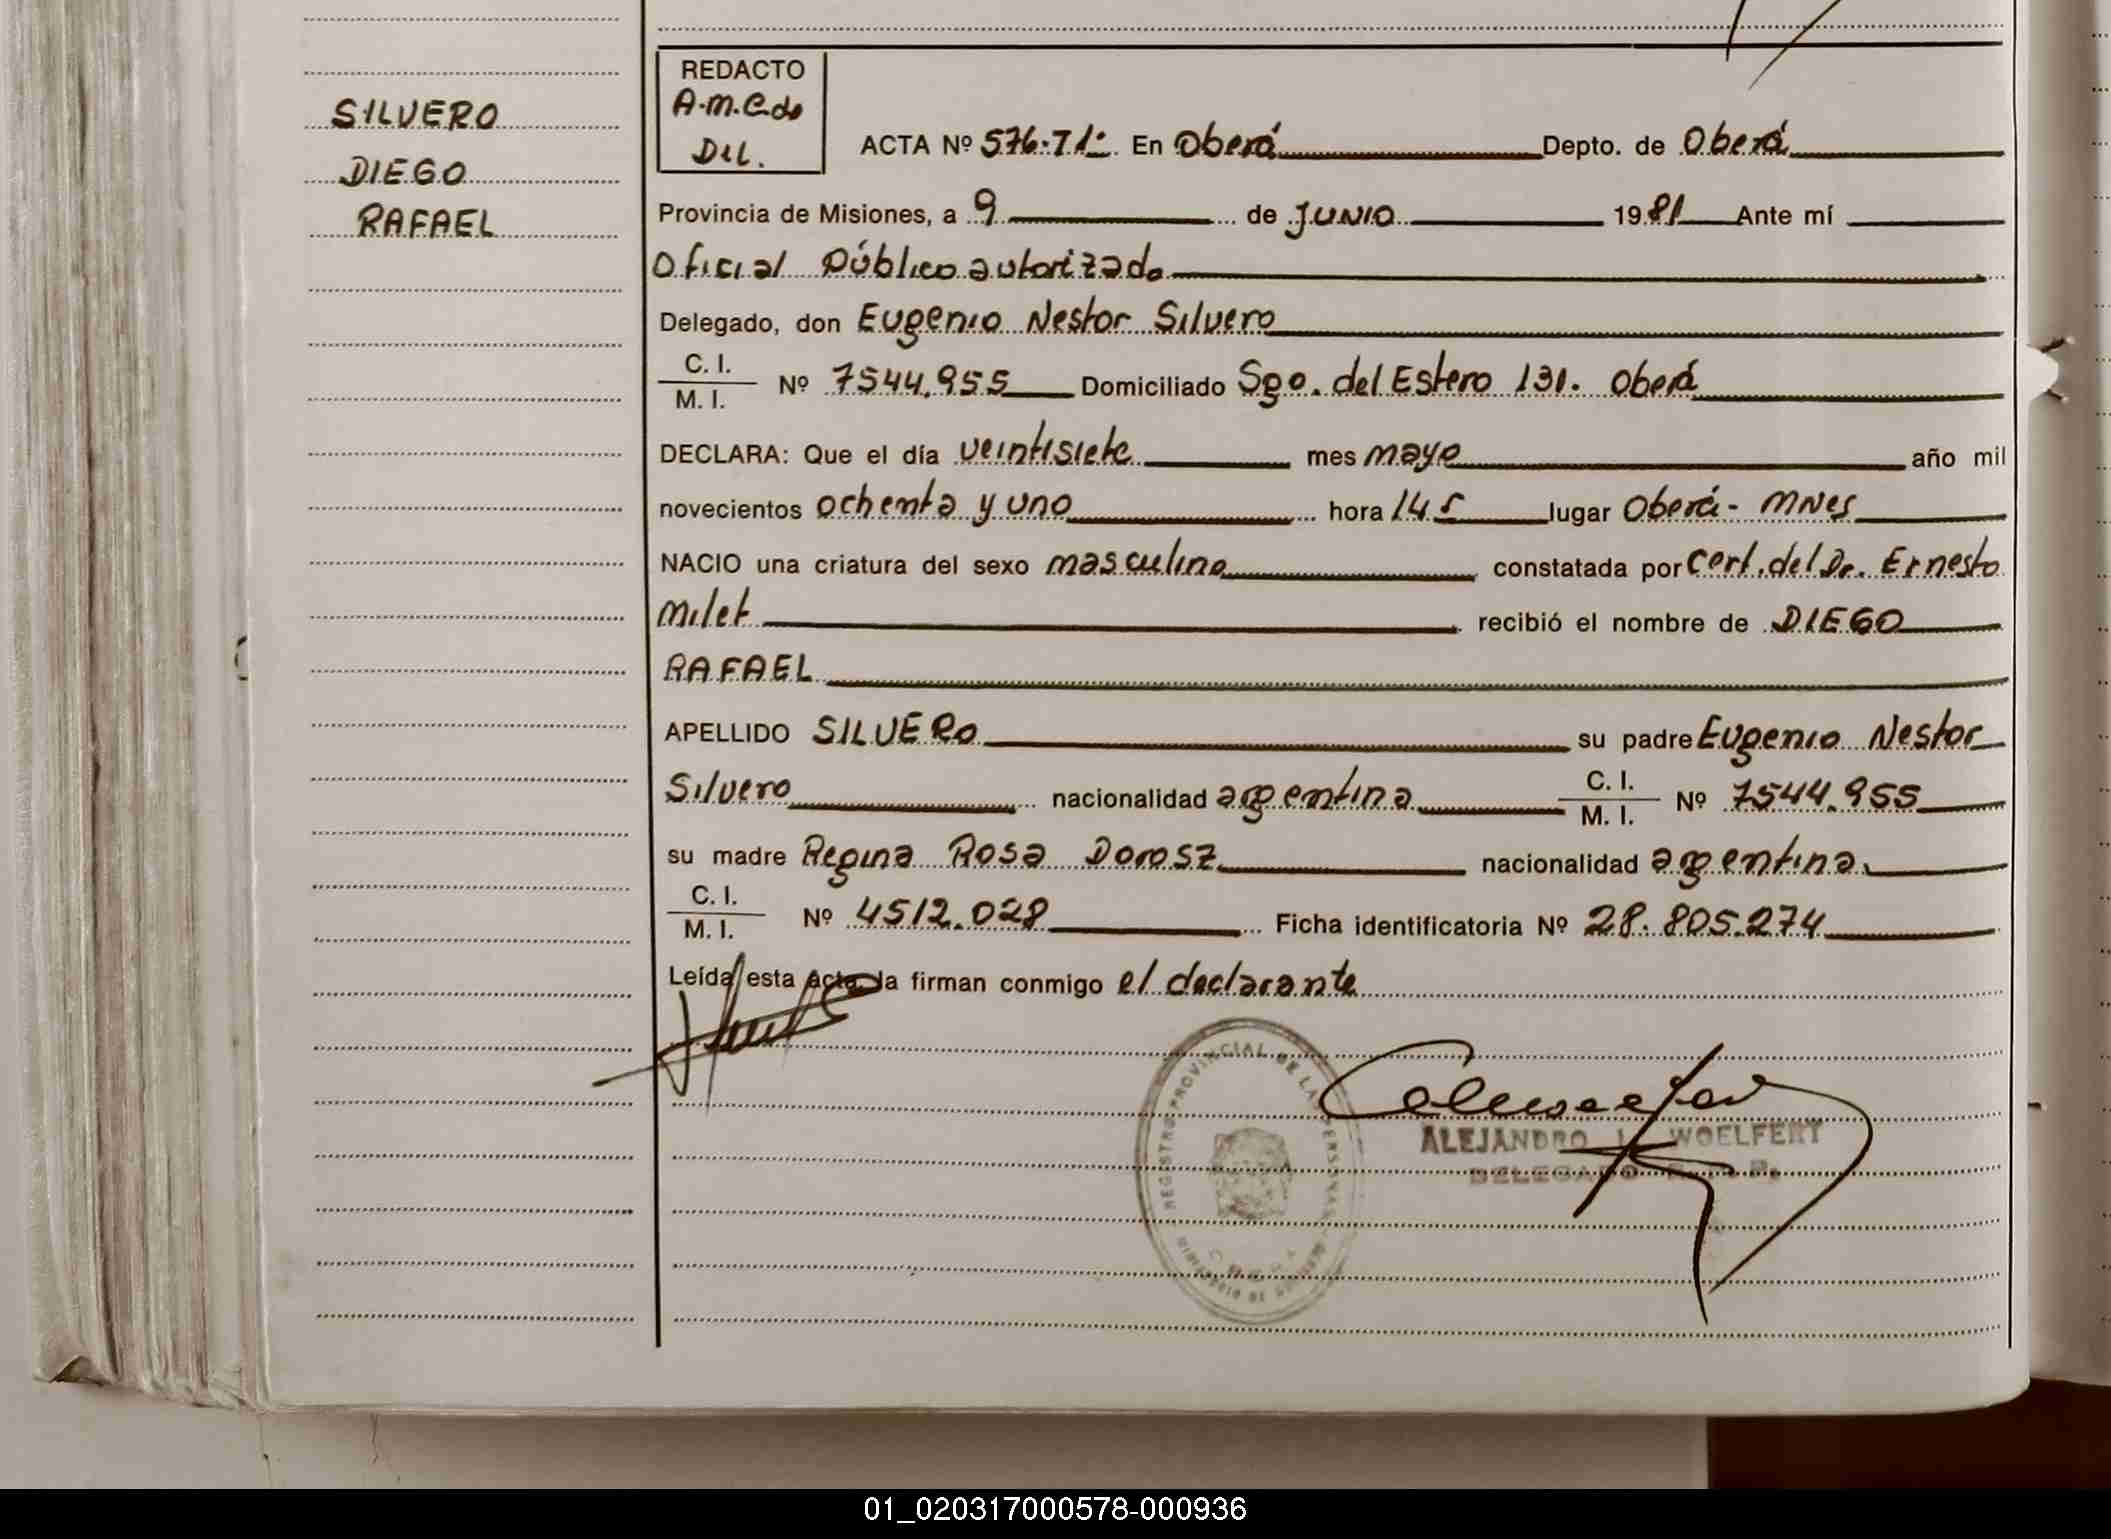 SILVERO
DIEGO
RAFAEL
REDACTO
A.M.C.do
Del.
ACTA Nº 576.T1º. En Oberá Depto. de Oberá
Provincia de Misiones, a 9 de JUNIO 1981 Ante mí
Oficial Público autorizado
Delegado, don Eugenio Nestor Silvero
C. I.
M. I. Nº 7544.955 Domiciliado Sgo. del Estero 131. Oberá
DECLARA: Que el día veintisiete mes mayo año mil
novecientos ochenta y uno hora 145 lugar Oberá - MNes
NACIO una criatura del sexo masculino constatada por Cert. del Dr. Ernesto
Milet recibió el nombre de DIEGO
RAFAEL
APELLIDO SILVERO su padre Eugenio Nestor
Silvero nacionalidad argentina C. I. M. I. Nº 7544.955
su madre Regina Rosa Dorosz nacionalidad argentina
C. I.
M. I. Nº 4512.028 Ficha identificatoria Nº 28.805.274
Leída esta acta, la firman conmigo el declarante
REGISTRO PROVINCIAL DE LAS PERSONAS
ALEJANDRO WOELFERT
DELEGADO
01_020317000578-000936